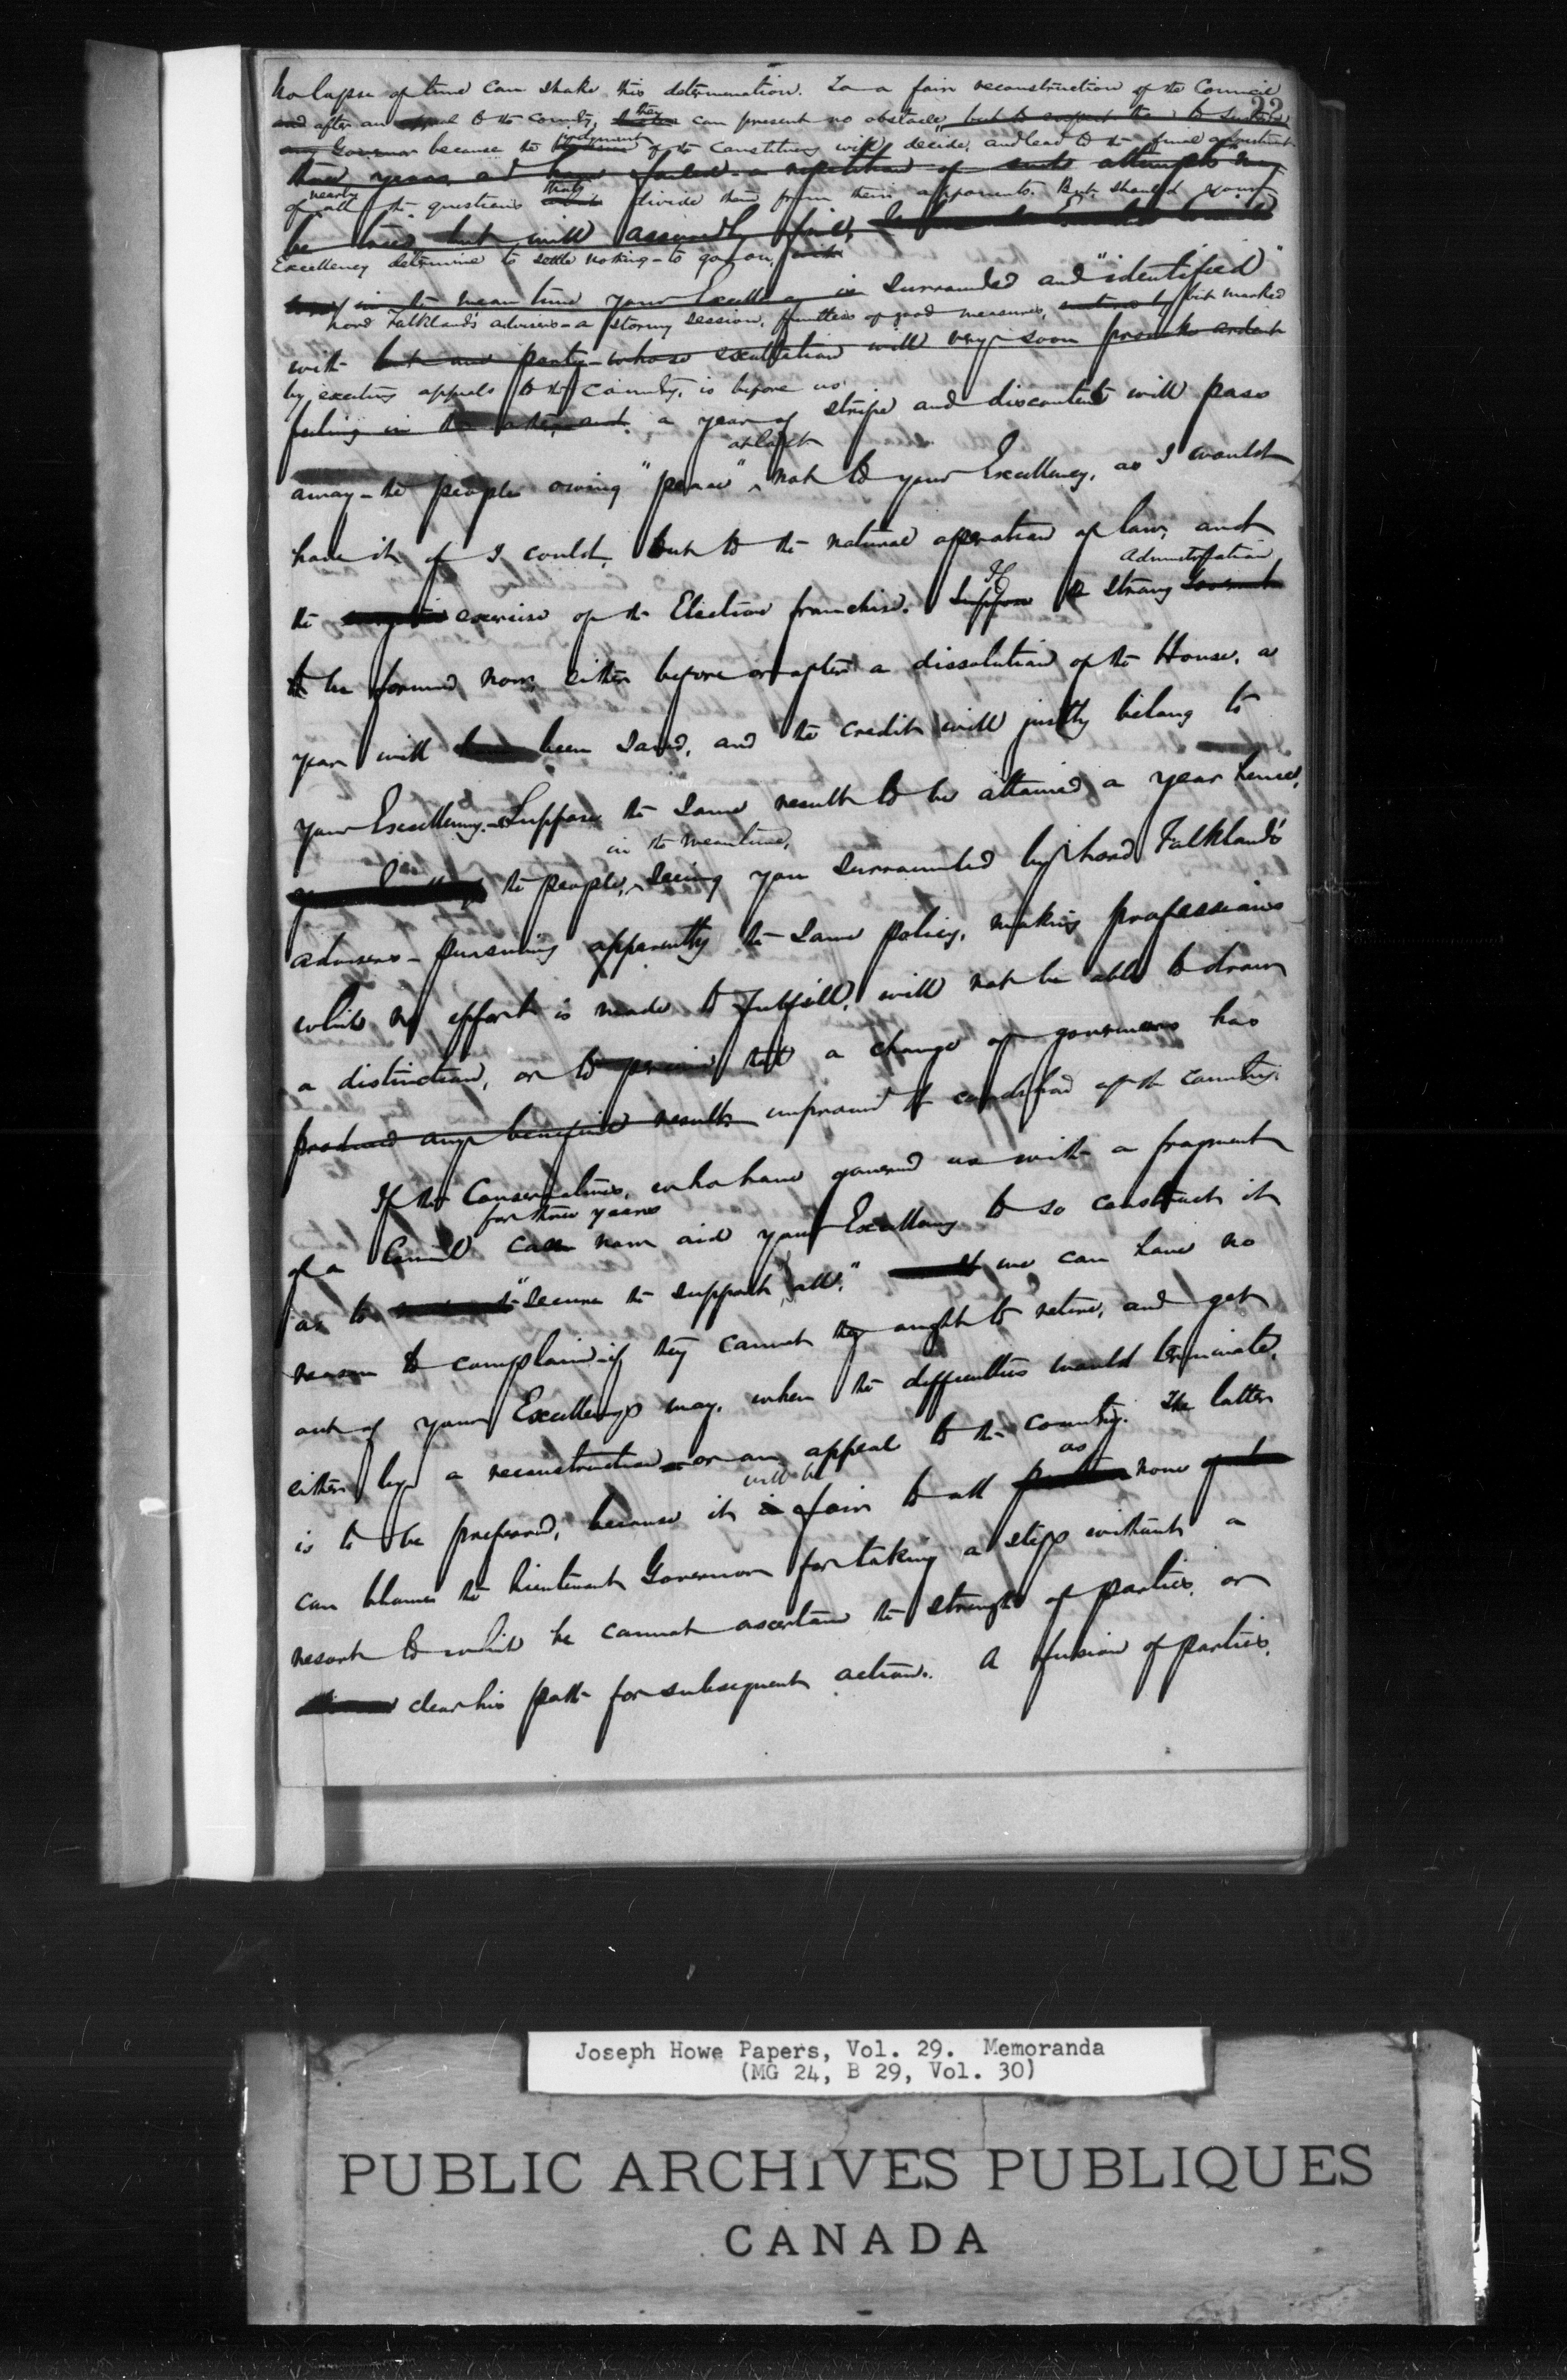 No lapse of time can shake this determination. To a fair reconstruction of the Council
22
and after an appeal to the Country, they can present no obstacle, but to support the
any Governor because the judgment of the Constituency will decide, and lead to the final adjustment
three years, and have failed - a repetition of such attempts may
of nearly all the questions that divide them from their opponents. But should your
be tried but will assuredly fail,
Excellency determine to settle nothing - to go on, with
in the mean time your Excellency is surrounded and "identified"
Lord Falkland's advisers - a stormy session, fruitless of good measures, but marked
with but one party - whose exultation will very soon provoke ardent
by exciting appeals to the Country, is before us.
feeling in the other, and a year of strife and discontent will pass
away - the people owing "peace" at last not to your Excellency, as I would
have it if I could, but to the natural operation of law, and
the exercise of the Elective franchise. Suppose If a strong Administration
to be formed now, either before or after a dissolution of the House, a
year will have been saved, and the credit will justly belong to
your Excellency. - Suppose the same result to be attained a year hence,
in the meantime,
the people, seeing you surrounded by Lord Falkland's
advisers - pursuing apparently the same policy, making professions
which no effort is made to fulfill, will not be able to draw
a distinction, or to perceive that a change of governors has
produced any beneficial results improved the condition of the Country.
If the Conservatives, who have governed us with a fragment
for three years
of a Council can now aid your Excellency to so construct it
as to "secure the support all." we can have no
reason to complain - if they cannot they ought to retire, and get
out of your Excellency's way, when the difficulties would terminate,
either by a reconstruction or an appeal to the Country. The latter
is to be preferred, because it is will be fair to all parties as none
can blame the Lieutenant Governor for taking a step without a
resort to which he cannot ascertain the strength of parties, or
clear his path for subsequent action. A fusion of parties,
Joseph Howe Papers, Vol. 29. Memoranda
(MG 24, B 29, Vol. 30)
PUBLIC ARCHIVES PUBLIQUES
CANADA